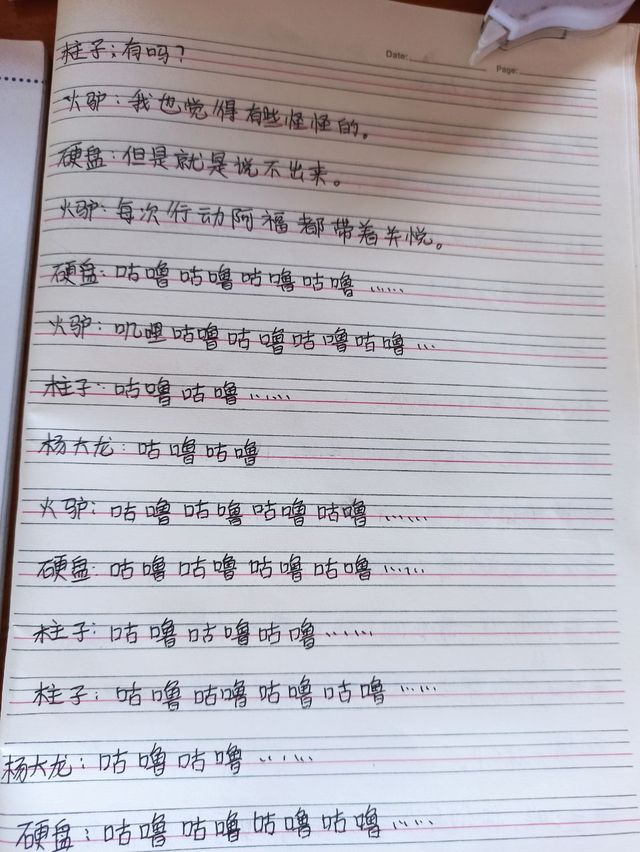 Date:
Page:
柱子:有吗?
火驴:我也觉得有些怪怪的。
硬盘:但是就是说不出来。
火驴:每次行动阿福都带着关悦。
硬盘:咕噜咕噜咕噜咕噜……
火驴:叽哩咕噜咕噜咕噜咕噜…
柱子:咕噜咕噜……
杨大龙:咕噜咕噜
火驴:咕噜咕噜咕噜咕噜……
硬盘:咕噜咕噜咕噜咕噜……
柱子:咕噜咕噜咕噜……
柱子:咕噜咕噜咕噜咕噜……
杨大龙:咕噜咕噜……
硬盘:咕噜咕噜咕噜咕噜……